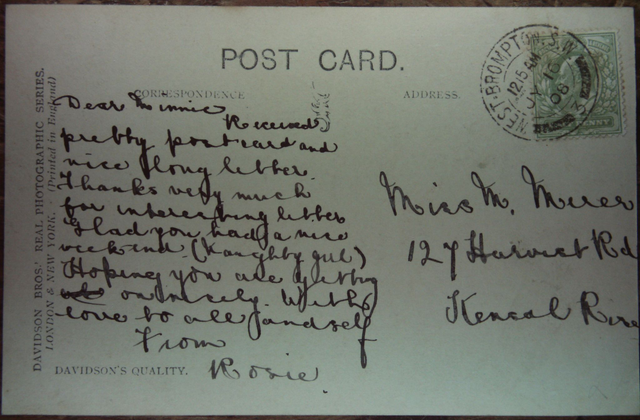 POST CARD.
WEST BROMPTON. S.W.
12.15 AM
JY 15
08
CORRESPONDENCE
ADDRESS.
Dear Minnie
Received
pretty postcard and
nice long letter.
Thanks very much
for interesting letter
Glad you had a nice
weekend. (Naughty girl)
Hoping you are getting
on nicely. With
love to all and self
From
Rosie.
Miss M.
127 Harvist Rd
Kensal Rise
DAVIDSON BROS.' REAL PHOTOGRAPHIC SERIES.
LONDON & NEW YORK. (Printed in England)
DAVIDSON'S QUALITY.